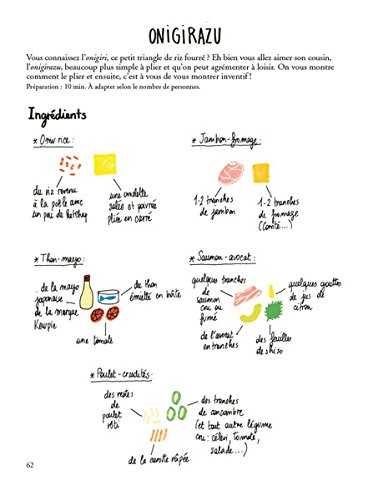 ONIGIRAZU
Vous connaissez l'onigiri, ce petit triangle de riz fourré ? Eh bien vous allez aimer son cousin,
l'onigirazu, beaucoup plus simple à plier et qu'on peut agrémenter à loisir. On vous montre
comment le plier et ensuite, c'est à vous de vous montrer inventif !
Préparation : 10 min. À adapter selon le nombre de personnes.
Ingrédients
* Omu rice :
du riz revenu
à la poêle avec
un peu de ketchup
une omelette
salée et poivrée
pliée en carré
* Jambon-fromage :
1-2 tranches
de jambon
1-2 tranches
de fromage
(Comté...)
* Thon-mayo :
de la mayo
japonaise
de la marque
Kewpie
de thon
émietté en boîte
une tomate
* Saumon-avocat :
quelques tranches
de saumon
cru ou
fumé
quelques gouttes
de jus de
citron
de l'avocat
en tranches
des feuilles
de shiso
* Poulet-crudités :
des restes
de
poulet
rôti
des tranches
de concombre
(et tout autre légume
cru : céleri, tomate,
salade...)
de la carotte râpée
62